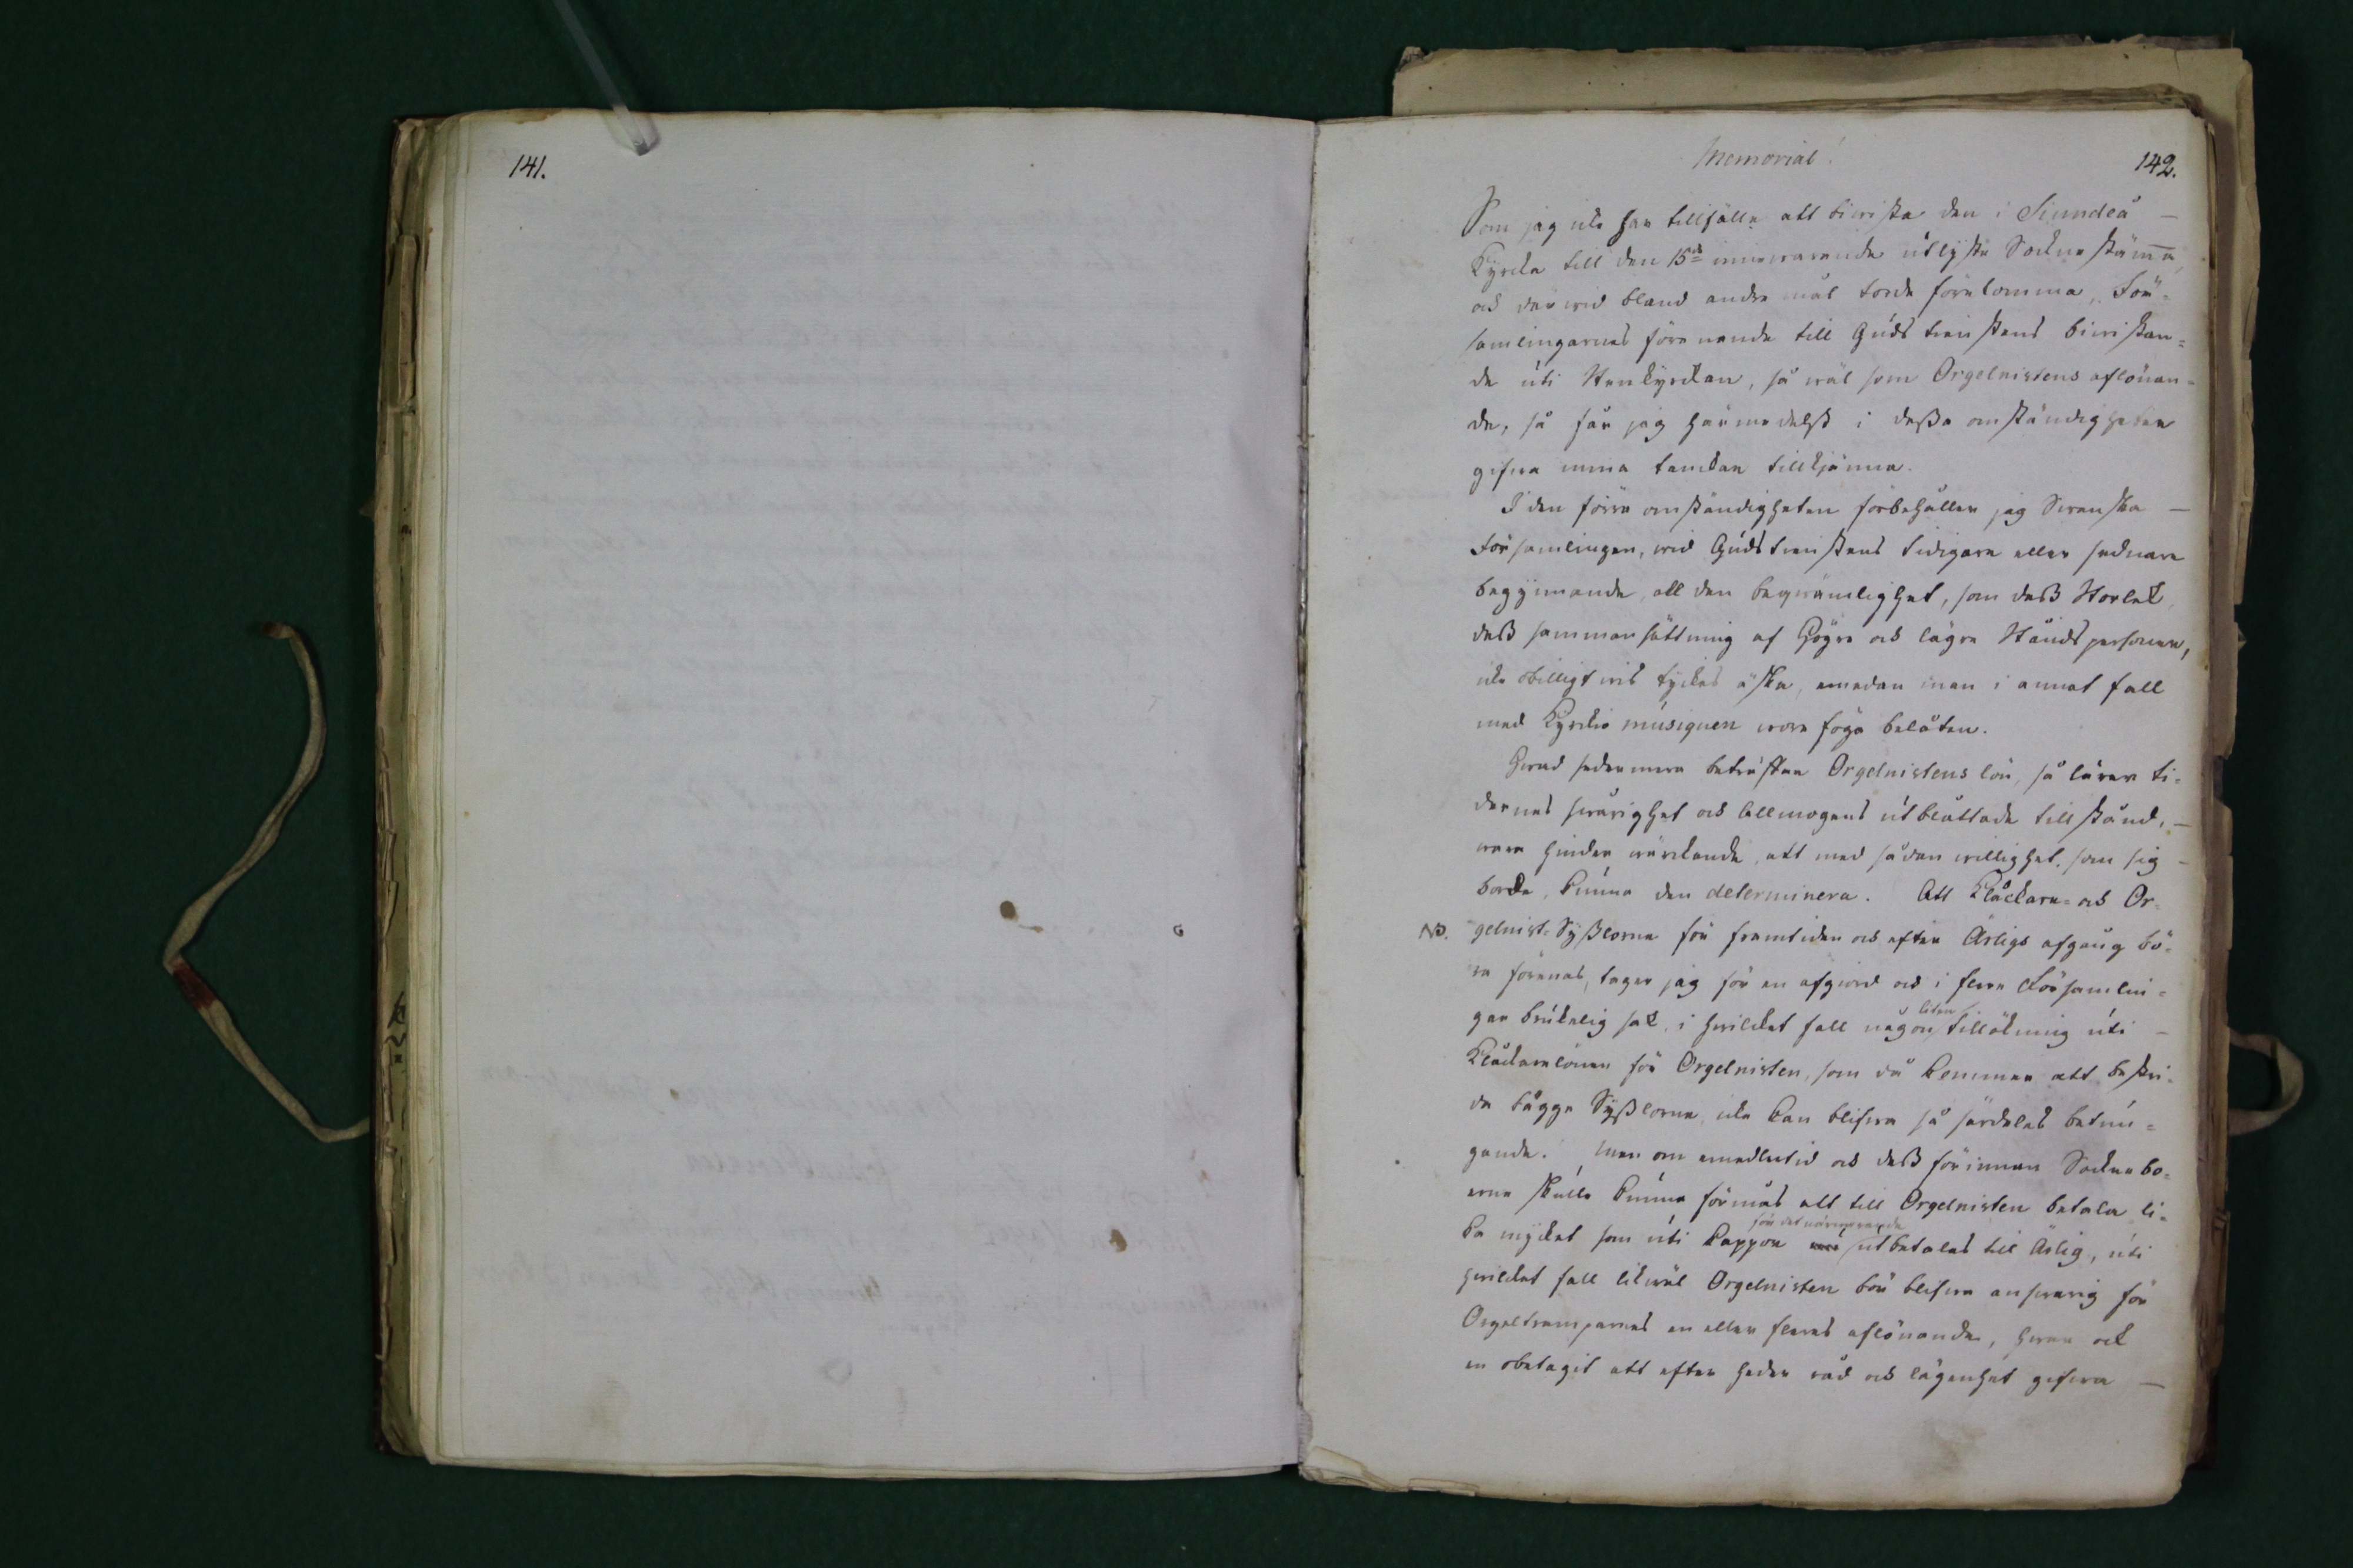 141.
142.
Memorial!
Som jag icke har tillfälle att biwista den i Siundeå
Kyrcka till den 15de innewarande utlyste Sockne stämma,
och där wid bland andra mål torde förekomma, För=
samlingarnas förenande till Gudstienstens biwistan=
de uti Stenkyrckan, så wäl som Orgelnistens aflönan=
de, så får jag härmedelst i dessa omständigheter
gifwa mina tanckar tillkjänna.
I den förra omständigheten förbehåller jag Swenska
Församlingen, wid Gudstienstens tidigare eller sednare
begynnande, all den beqwämlighet, som dess Storlek,
dess sammansättning af högre och lägre Ståndspersoner,
icke obilligtwis tyckes äska, emedan man i annat fall
med Kyrckio musiquen wore föga belåten.
Hwad sedermera beträffar Orgelnistens lön, så lärer ti=
dernas swårighet och Allmogens utblåttade tillstånd,
wara hinder wärckande, att med sådan willighet, som sig
borde, kunna den determinera. Att Klåckare= och Or=
NB. gelnist=Sysslorne för framtiden och efter Ärligs afgång bö=
ra förenas, tager jag för en afgiord och i flera Församlin=
gar brukelig sak, i hwilcket fall någon liten tillökning uti
Klåckarelönen för Orgelnisten, som då kommer att bestri=
da bägge Sysslorne, icke kan blifwa så särdeles betun=
gande. Men om emedlertid och dess förinnan Sockne bo=
erne skulle kunna förmås att till Orgelnisten betala li=
ka mycket som uti Kappor för det närwarande utbetalas til Ärlig, uti
hwilcket fall likwäl Orgelnisten bör blifwa answarig för
Orgeltramparnes en eller fleras aflönande, hwar ock
en obetagit att efter heder råd och lägenhet gifwa